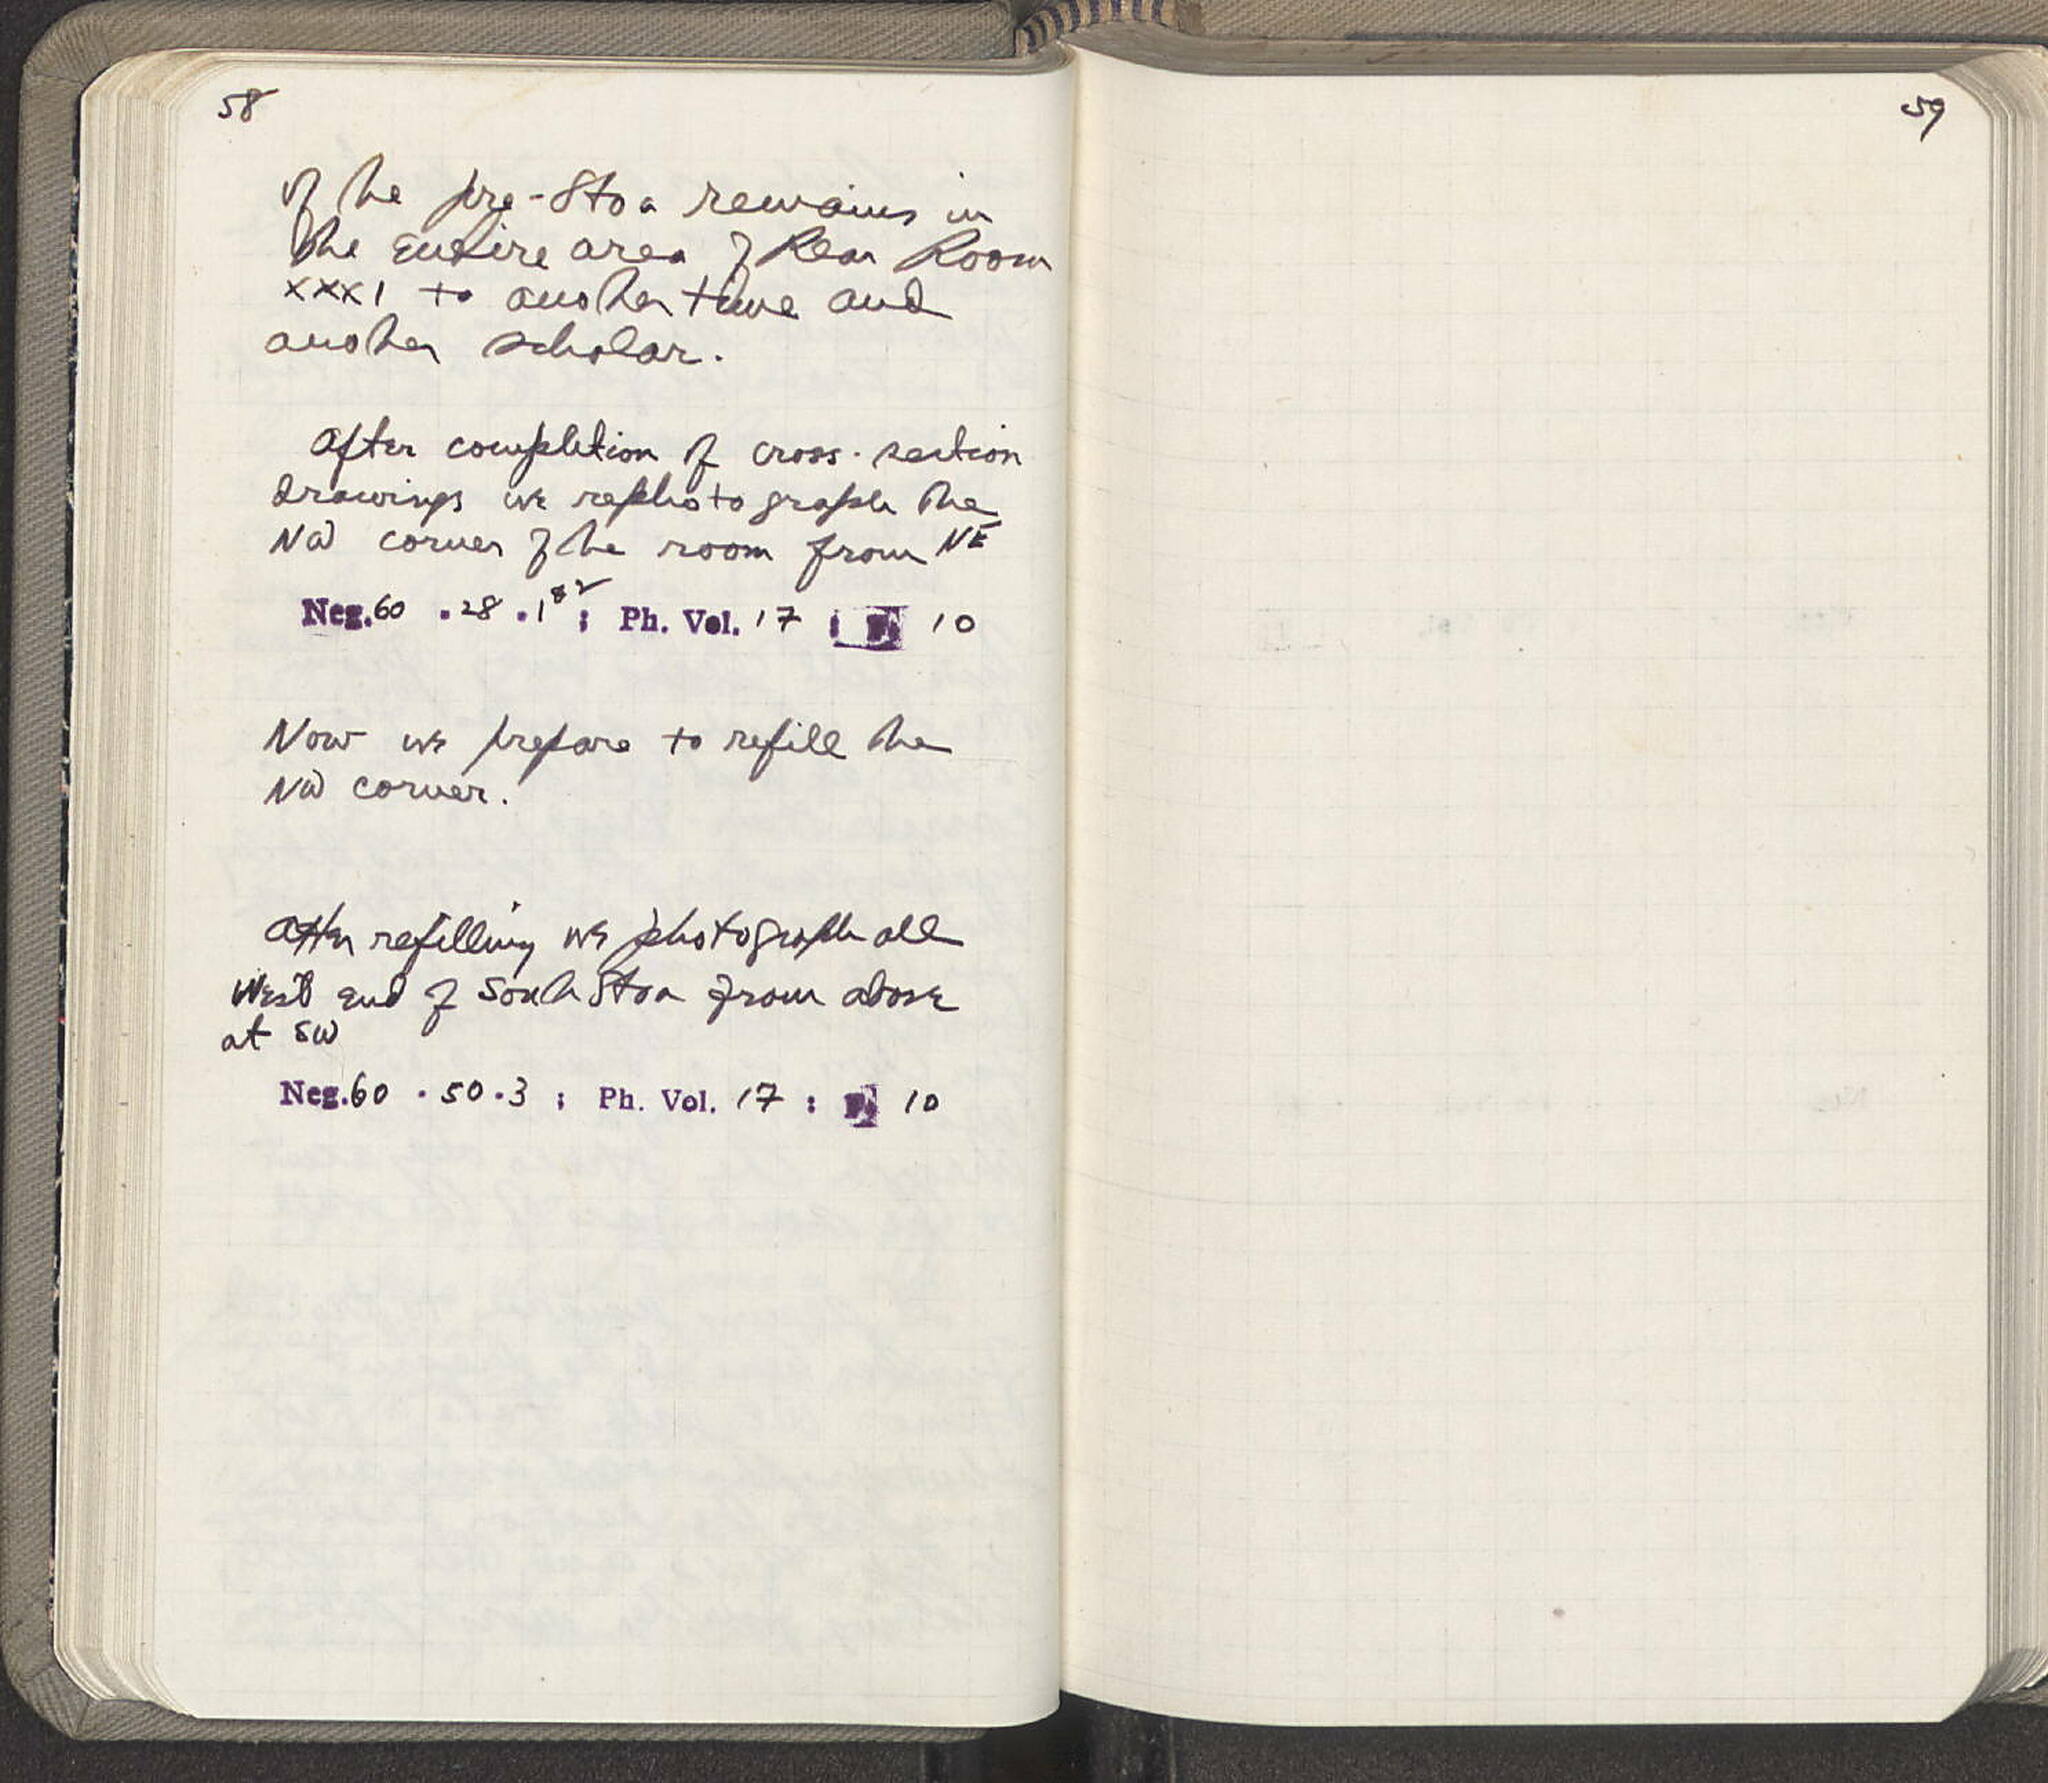 58
of the pre-Stoa remains in
the entire area of Rear Room
XXXI to another time and
another scholar.
After completion of cross-section
drawings we rephotograph the
NW corner of the room from NE
Neg. 60 . 28 . 1 & 2 ; Ph. Vol. 17 : P. 10
Now we prepare to refill the
NW corner.
After refilling we photograph all
West end of South Stoa from above
at SW
Neg. 60 . 50 . 3 ; Ph. Vol. 17 : P. 10
59